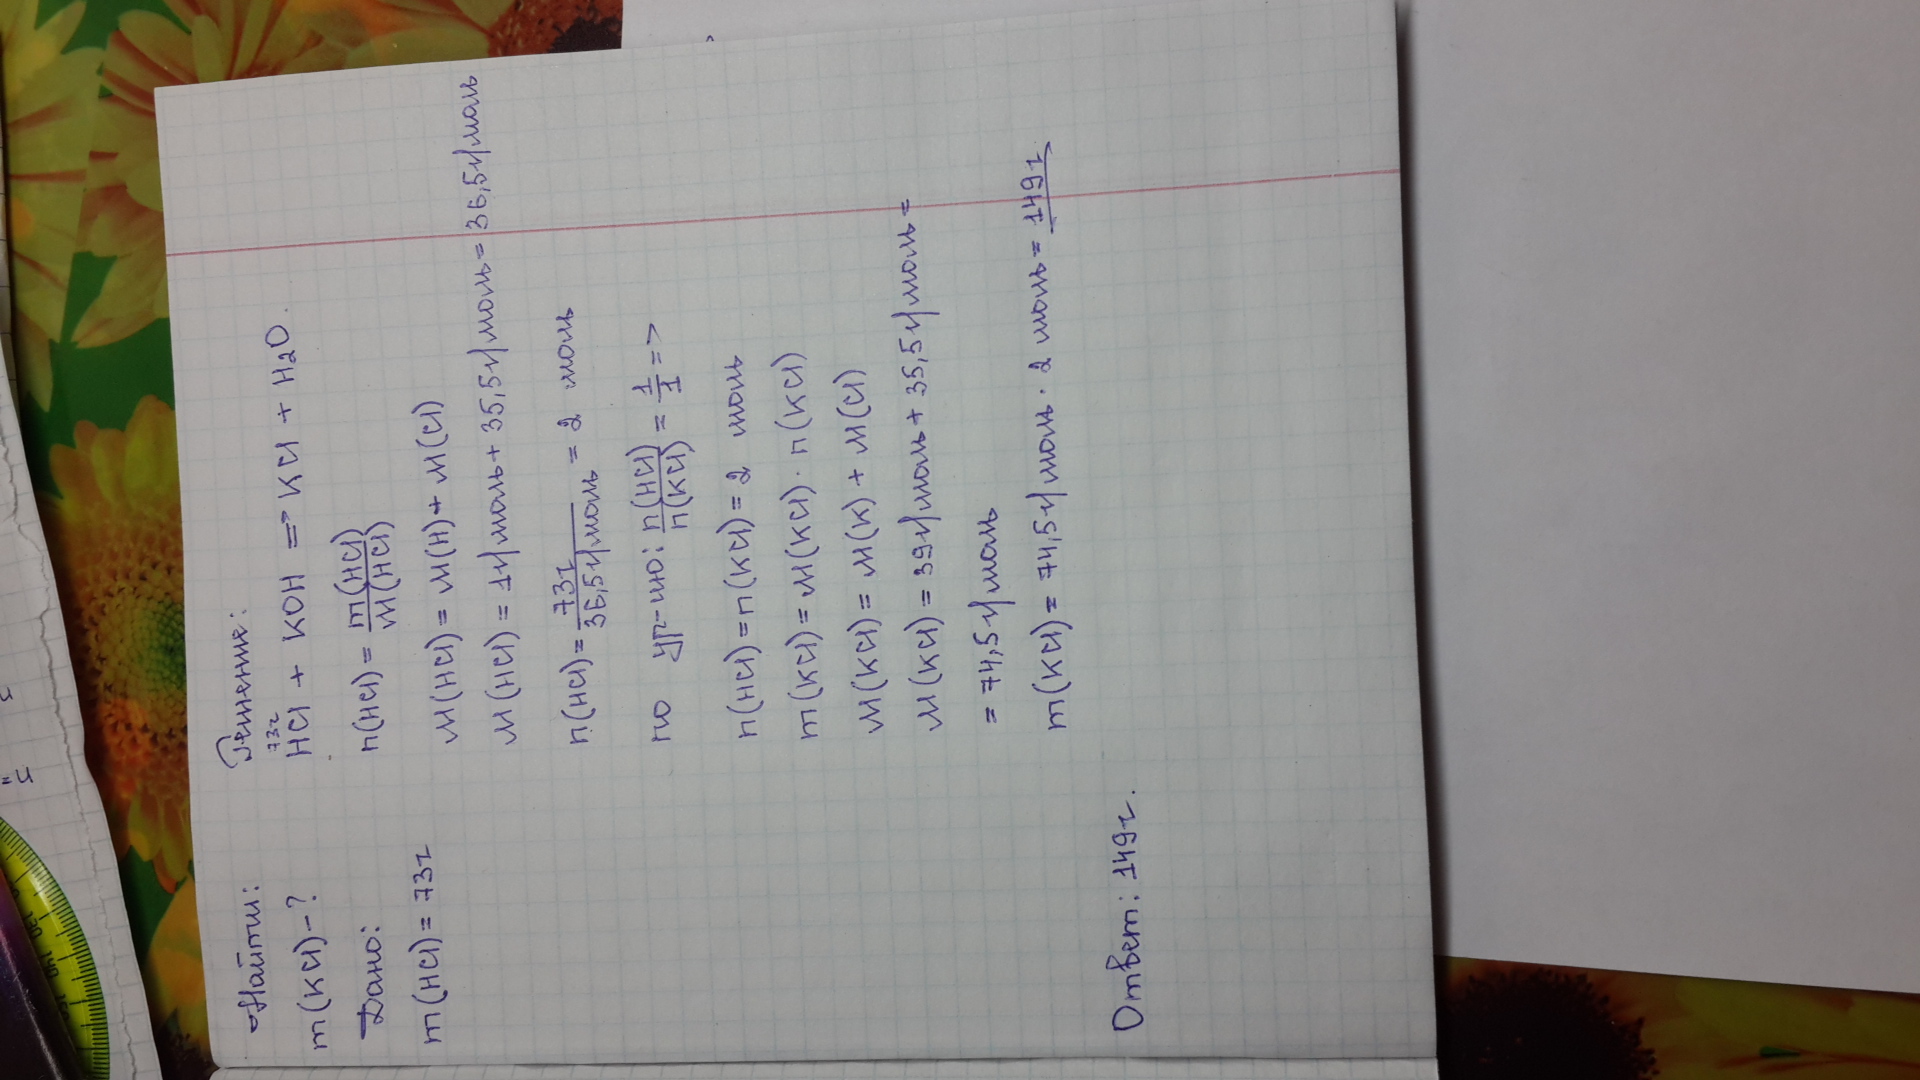 Найти:
m(KCl)-?
Дано:
m(HCl) = 73г
Решение:
73г
HCl + KOH => KCl + H₂O.
n(HCl) = m(HCl) / M(HCl)
M(HCl) = M(H) + M(Cl)
M(HCl) = 1г/моль + 35,5г/моль = 36,5г/моль
n(HCl) = 73г / 36,5г/моль = 2 моль
по ур-ию: n(HCl) / n(KCl) = 1/1 =>
n(HCl) = n(KCl) = 2 моль
m(KCl) = M(KCl) · n(KCl)
M(KCl) = M(K) + M(Cl)
M(KCl) = 39г/моль + 35,5г/моль =
= 74,5г/моль
m(KCl) = 74,5г/моль · 2 моль = 149г
Ответ: 149г.